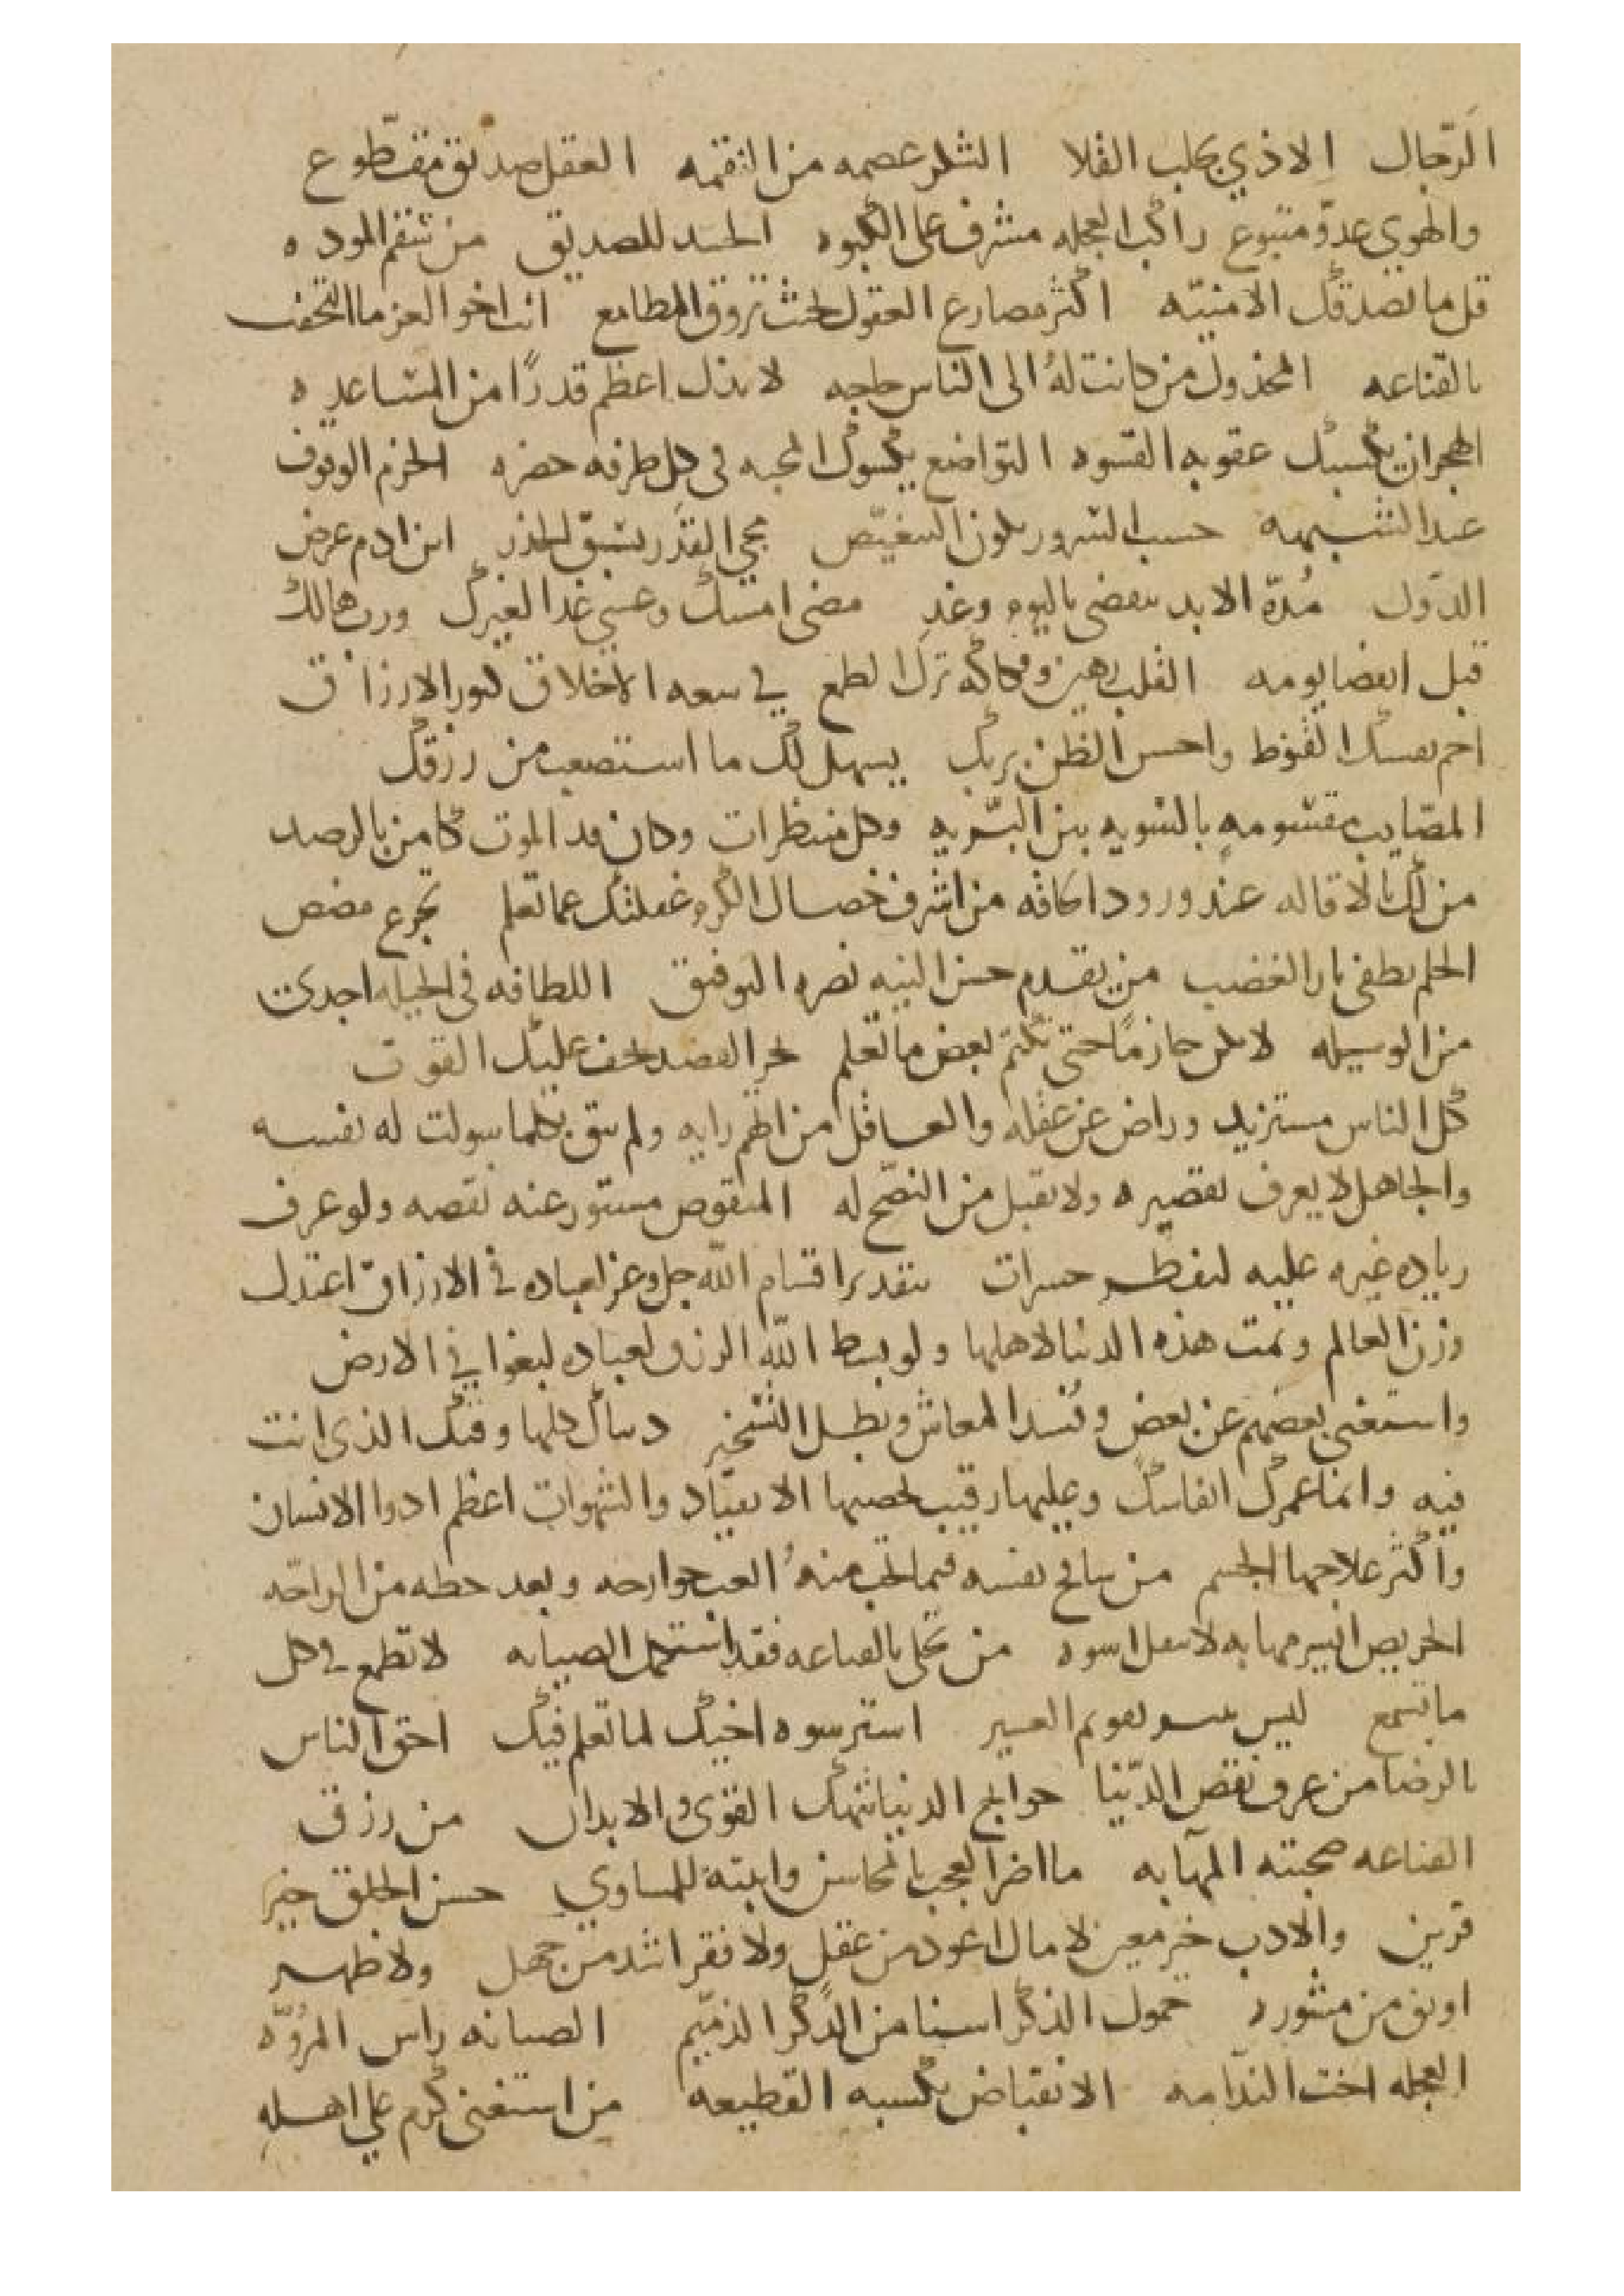 الرّجال الاذي يجلب القلا الشكر عصمه من النقمه العقل صديق مقطوع
والهوي عدوّ متبوع راكب العجله مشرف على الكبوه الحسد للصديق من سقم الموده
قل ما تصدقك الامنيّه اكثر مصارع العقول تحت بروق المطامع انت اخو العز ما التحفت
بالقناعه المخذول من كانت لهُ الى الناس حاجه اعظم قدرًا من المساعده
الهجران يكسبك عقوبه القسوه التواضع يكسوك المحبه في كل طرفه الحزم الوقوف
عند الشبهه حسب السرور يكون التنغيّص مجي القدَر يسبق الحذر ابن ادم عرض
الدّول مُدّة الابد تنقضى باليوم وغدٍ مضى امسك وعسى غدا لغيرك ورب هالك
قبل انقضا يومه القلب رهين وفكاكه ترك الطمع في سعه الاخلاق كنوز الارزاق
احم نفسك القنوط واحسن الظن بربك يسهل لك ما استصعب من رزقك
المصايب مقسومه بالسويه بين البرّيه وكل منتظرات وكان قد الموت كامن بالرصد
من لك بالاقاله عند ورود من اشرف خصال الكرم غفلتك عما تعلم تجرع مضض
الحلم يطفي نار الغضب من يقدم حسن النيه نصره التوفيق اللطافه في الحيله اجدى
من الوسيله لا تكن حازمًا حتى تكتم بعض ما تعلم القصد يخف عليك القوت
كل الناس مستزيد وراض عن عقله والعاقل من اتهم رايه ولم يثق بكلما سولت له نفسه
والجاهل لا يعرف تقصيره ولا يقبل من النصّح له المنقوص مستور عنه نقصه ولو عرف
زياده غيره عليه لتفطر حسرات بتقدير اقسام الله جل وعز لعباده في الارزاق اعتدل
وزن العالم وتمت هذه الدنيا لاهلها ولو بسط الله الرزق لعباده لبغوا في الارض
واستغنى بعضهم عن بعض وفسد المعاش وبطل التسخير دنياك كلها وقتك الذى انت
فيه وانما عمرك انفاسك وعليها رقيب يحصيها الاعتياد والشهوات اعظم ادوا الانسان
واكثر علاجها الجسم من سامح نفسه فيما يحب منهُ اتعب جوارحه وبعد حظه من الراحّه
الحريص اسير مهابه لا من تحلى بالقناعه فقد استكمل الصيانه لا تطمع في كل
ما تسمع ليس تقويم العسير استر سوه اخيك لما تعلم فيك احق الناس
بالرضا من عرف نقص الدّنيا حوايج الدنيا تنهك القوى والابدان من رزق
القناعه صحبته المهابه ما اضر العجب بالمحاسن للمساوي حسن الخلق خير
قرين والادب خير معين لا مال اعود من عقل ولا فقر اشد من جهل ولا ظهير
اوثق من مشوره خمول الذكر اسنا من الذكر الذميم الصيانه راس المروّه
العجله اخت الندّامه الانقباض يكسبه القطيعه من استغنى كرم على اهله